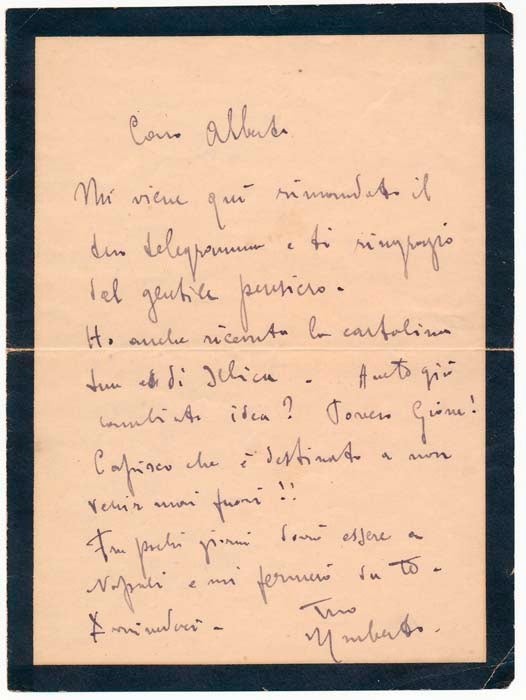 Caro Alberto
Mi viene quì rimandato il
tuo telegramma e ti ringrazio
del gentile pensiero -
Ho anche ricevuta la cartolina
tua e di - già
cambiato idea? Povero Gione!
Capisco che è destinato a non
venir mai fuori!!
Fra pochi giorni dovrò essere a
Napoli e mi fermerò da te -
Arrivederci - Tuo
Umberto -